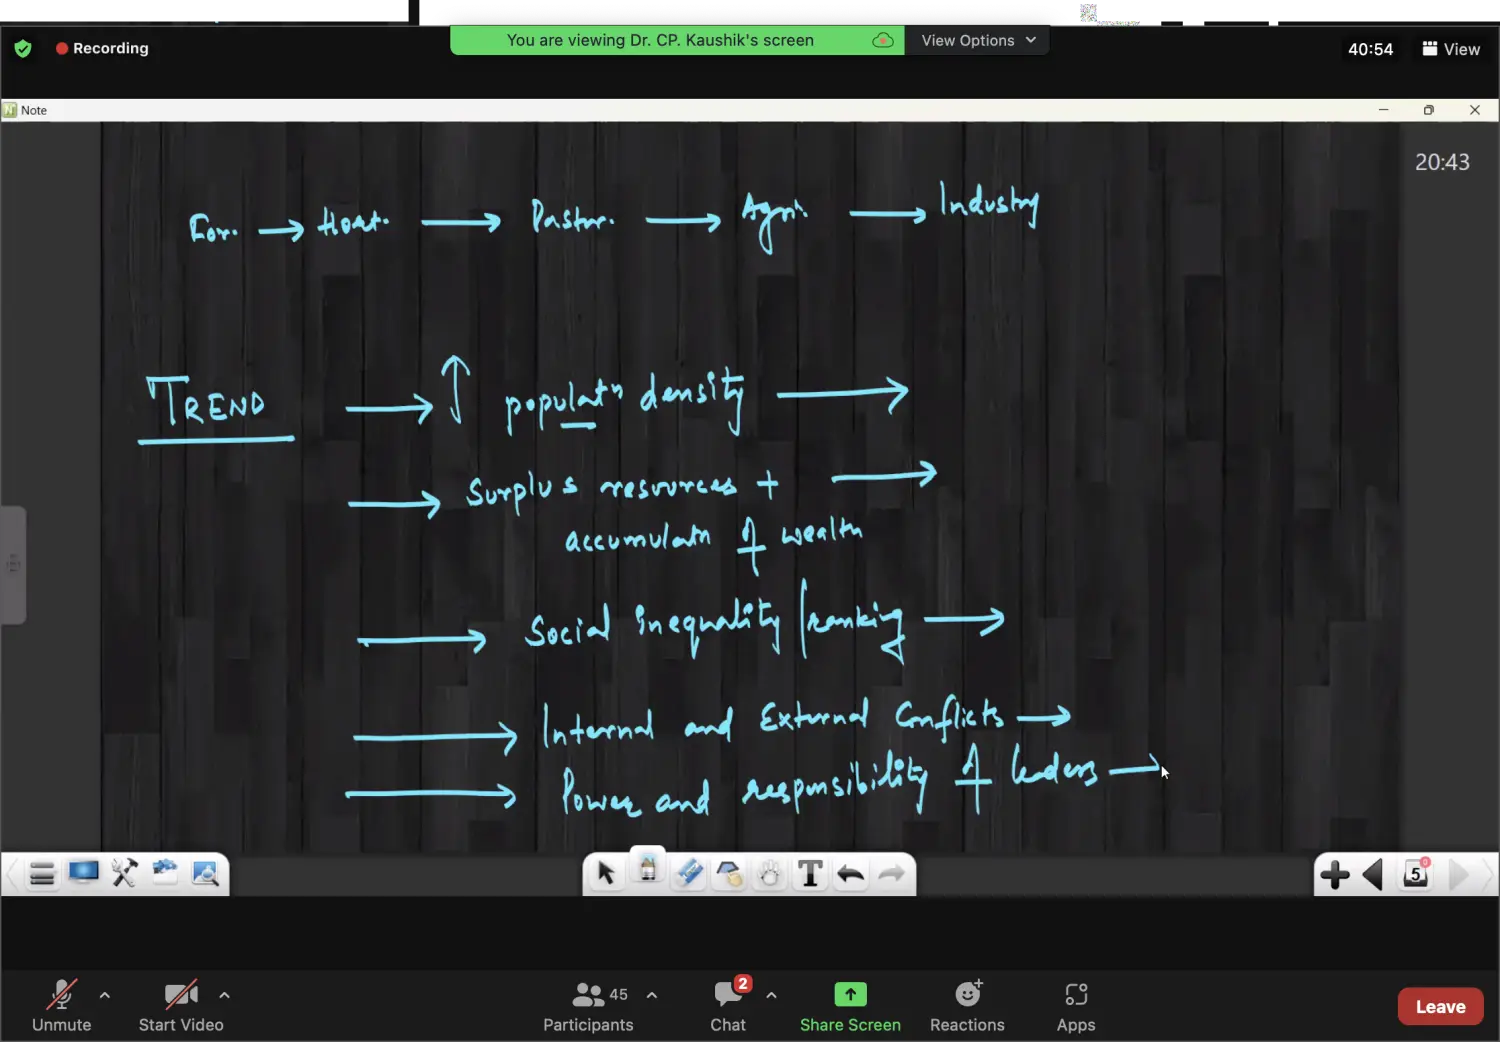 Recording
You are viewing Dr. CP. Kaushik's screen
View Options
40:54
View
Note
20:43
For. → Hort. → Pastor. → Agri. → Industry
TREND → ↑ populatn density →
→ Surplus resources + →
accumulatn of wealth
→ Social inequality / ranking →
→ Internal and External Conflicts →
→ Power and responsibility of leaders →
T
5
0
Unmute
Start Video
45
Participants
2
Chat
Share Screen
Reactions
Apps
Leave